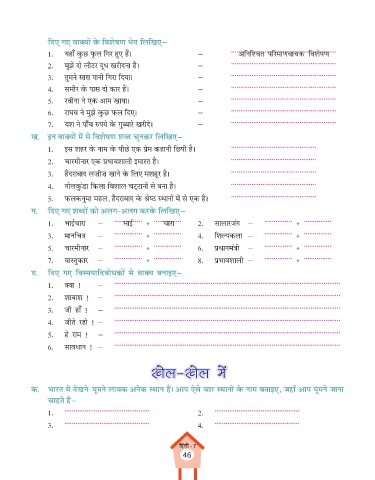 दिए गए वाक्यों के विशेषण भेद लिखिए–
1. यहाँ कुछ फूल गिर हुए हैं। – अनिश्चित परिमाणवाचक विशेषण
2. मुझे दो लीटर दूध खरीदना है। –
3. तुमने सारा पानी गिरा दिया। –
4. समीर के पास दो कार हैं। –
5. रवीना ने एक आम खाया। –
6. राघव ने मुझे कुछ फल दिए। –
7. यश ने पाँच रुपये के गुब्बारे खरीदे। –
ख. इन वाक्यों में से विशेषण शब्द चुनकर लिखिए–
1. इस शहर के नाम के पीछे एक प्रेम कहानी छिपी है।
2. चारमीनार एक प्रभावशाली इमारत है।
3. हैदराबाद लजीज खाने के लिए मशहूर है।
4. गोलकुंडा किला विशाल चट्टानों से बना है।
5. फलकनुमा महल, हैदराबाद के श्रेष्ठ स्थानों में से एक है।
ग. दिए गए शब्दों को अलग-अलग करके लिखिए–
1. भाईचारा – भाई + चारा 2. सालारजंग – +
3. मानचित्र – + 4. शिल्पकला – +
5. चारमीनार – + 6. प्रधानमंत्री – +
7. वास्तुकार – + 8. प्रभावशाली – +
घ. दिए गए विस्मयादिबोधकों से वाक्य बनाइए–
1. क्या ! –
2. शाबाश ! –
3. जी हाँ ! –
4. जीते रहो ! –
5. हे राम ! –
6. सावधान ! –
खेल-खेल में
क. भारत में देखने-घूमने लायक अनेक स्थान हैं। आप ऐसे चार स्थानों के नाम बताइए, जहाँ आप घूमने जाना
चाहते हैं–
1. 2.
3. 4.
हिंदी-7
46